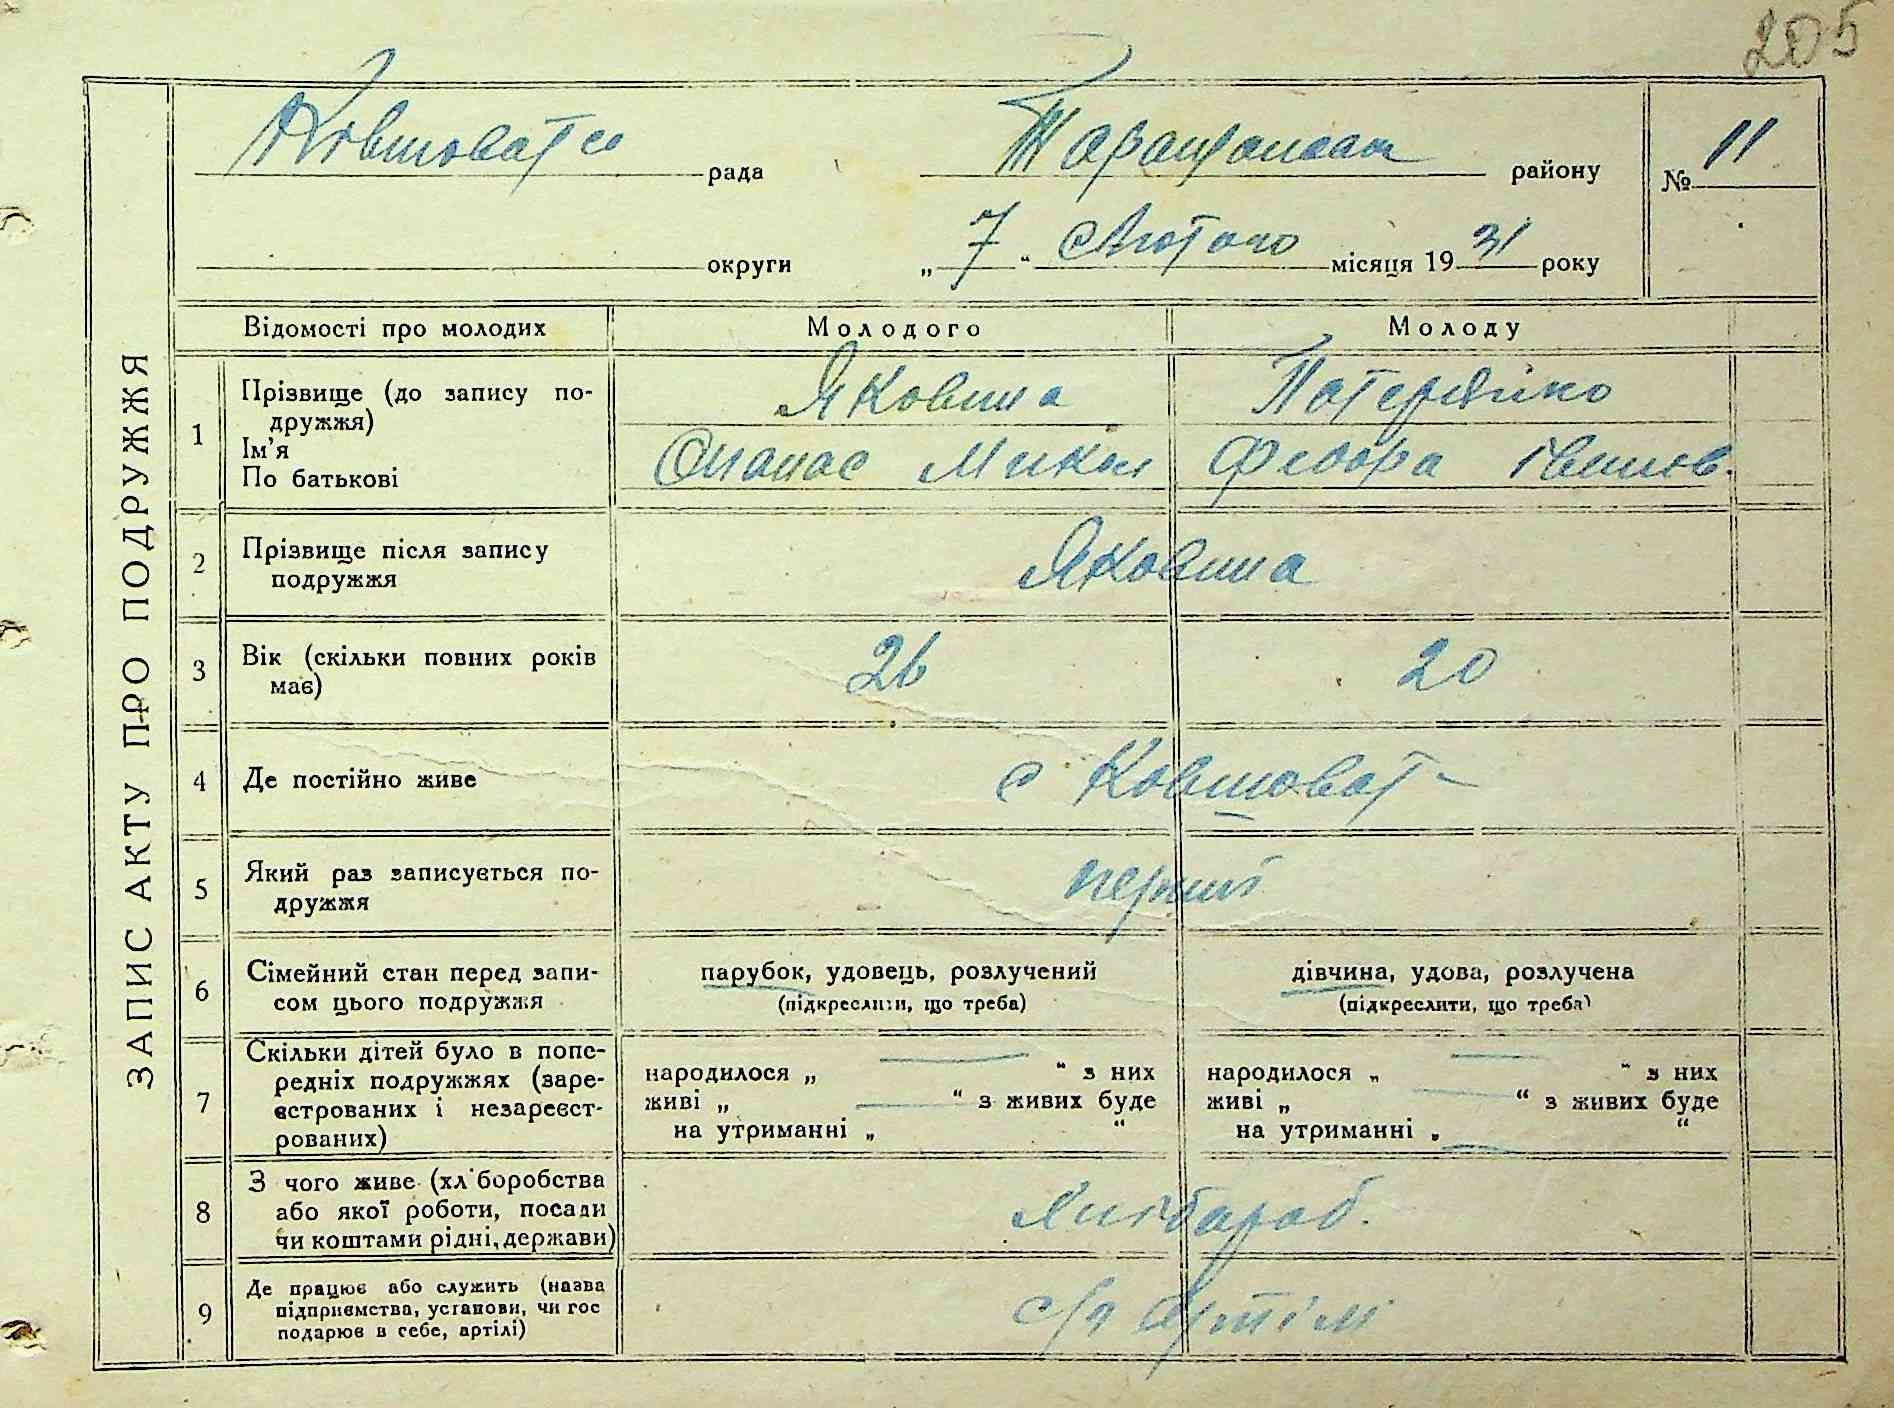 205
Ковшовата рада Таращанськ району № 11
округи „7“ Лютого місяця 1931 року
ЗАПИС АКТУ ПРО ПОДРУЖЖЯ
Відомості про молодих Молодого Молоду
1 Прізвище (до запису по-
дружжя)
Ім’я
По батькові
Яковина
Опанас Микол
Федора Іванов.
2 Прізвище після запису
подружжя
Яковина
3 Вік (скільки повних років
має)
26 20
4 Де постійно живе
с Ковшоват
5 Який раз записується по-
дружжя
перший
6 Сімейний стан перед запи-
сом цього подружжя
парубок, удовець, розлучений
(підкреслити, що треба)
дівчина, удова, розлучена
(підкреслити, що треба)
7 Скільки дітей було в попе-
редніх подружжях (заре-
єстрованих і незареєст-
рованих)
народилося „ — “ з них
живі „ — “ з живих буде
на утриманні „ “
народилося „ — “ з них
живі „ — “ з живих буде
на утриманні „ — “
8 З чого живе (хліборобства
або якої роботи, посади
чи коштами рідні, держави)
Хлібароб.
9 Де працює або служить (назва
підприємства, установи, чи гос
подарює в себе, артілі)
с/г Артілі